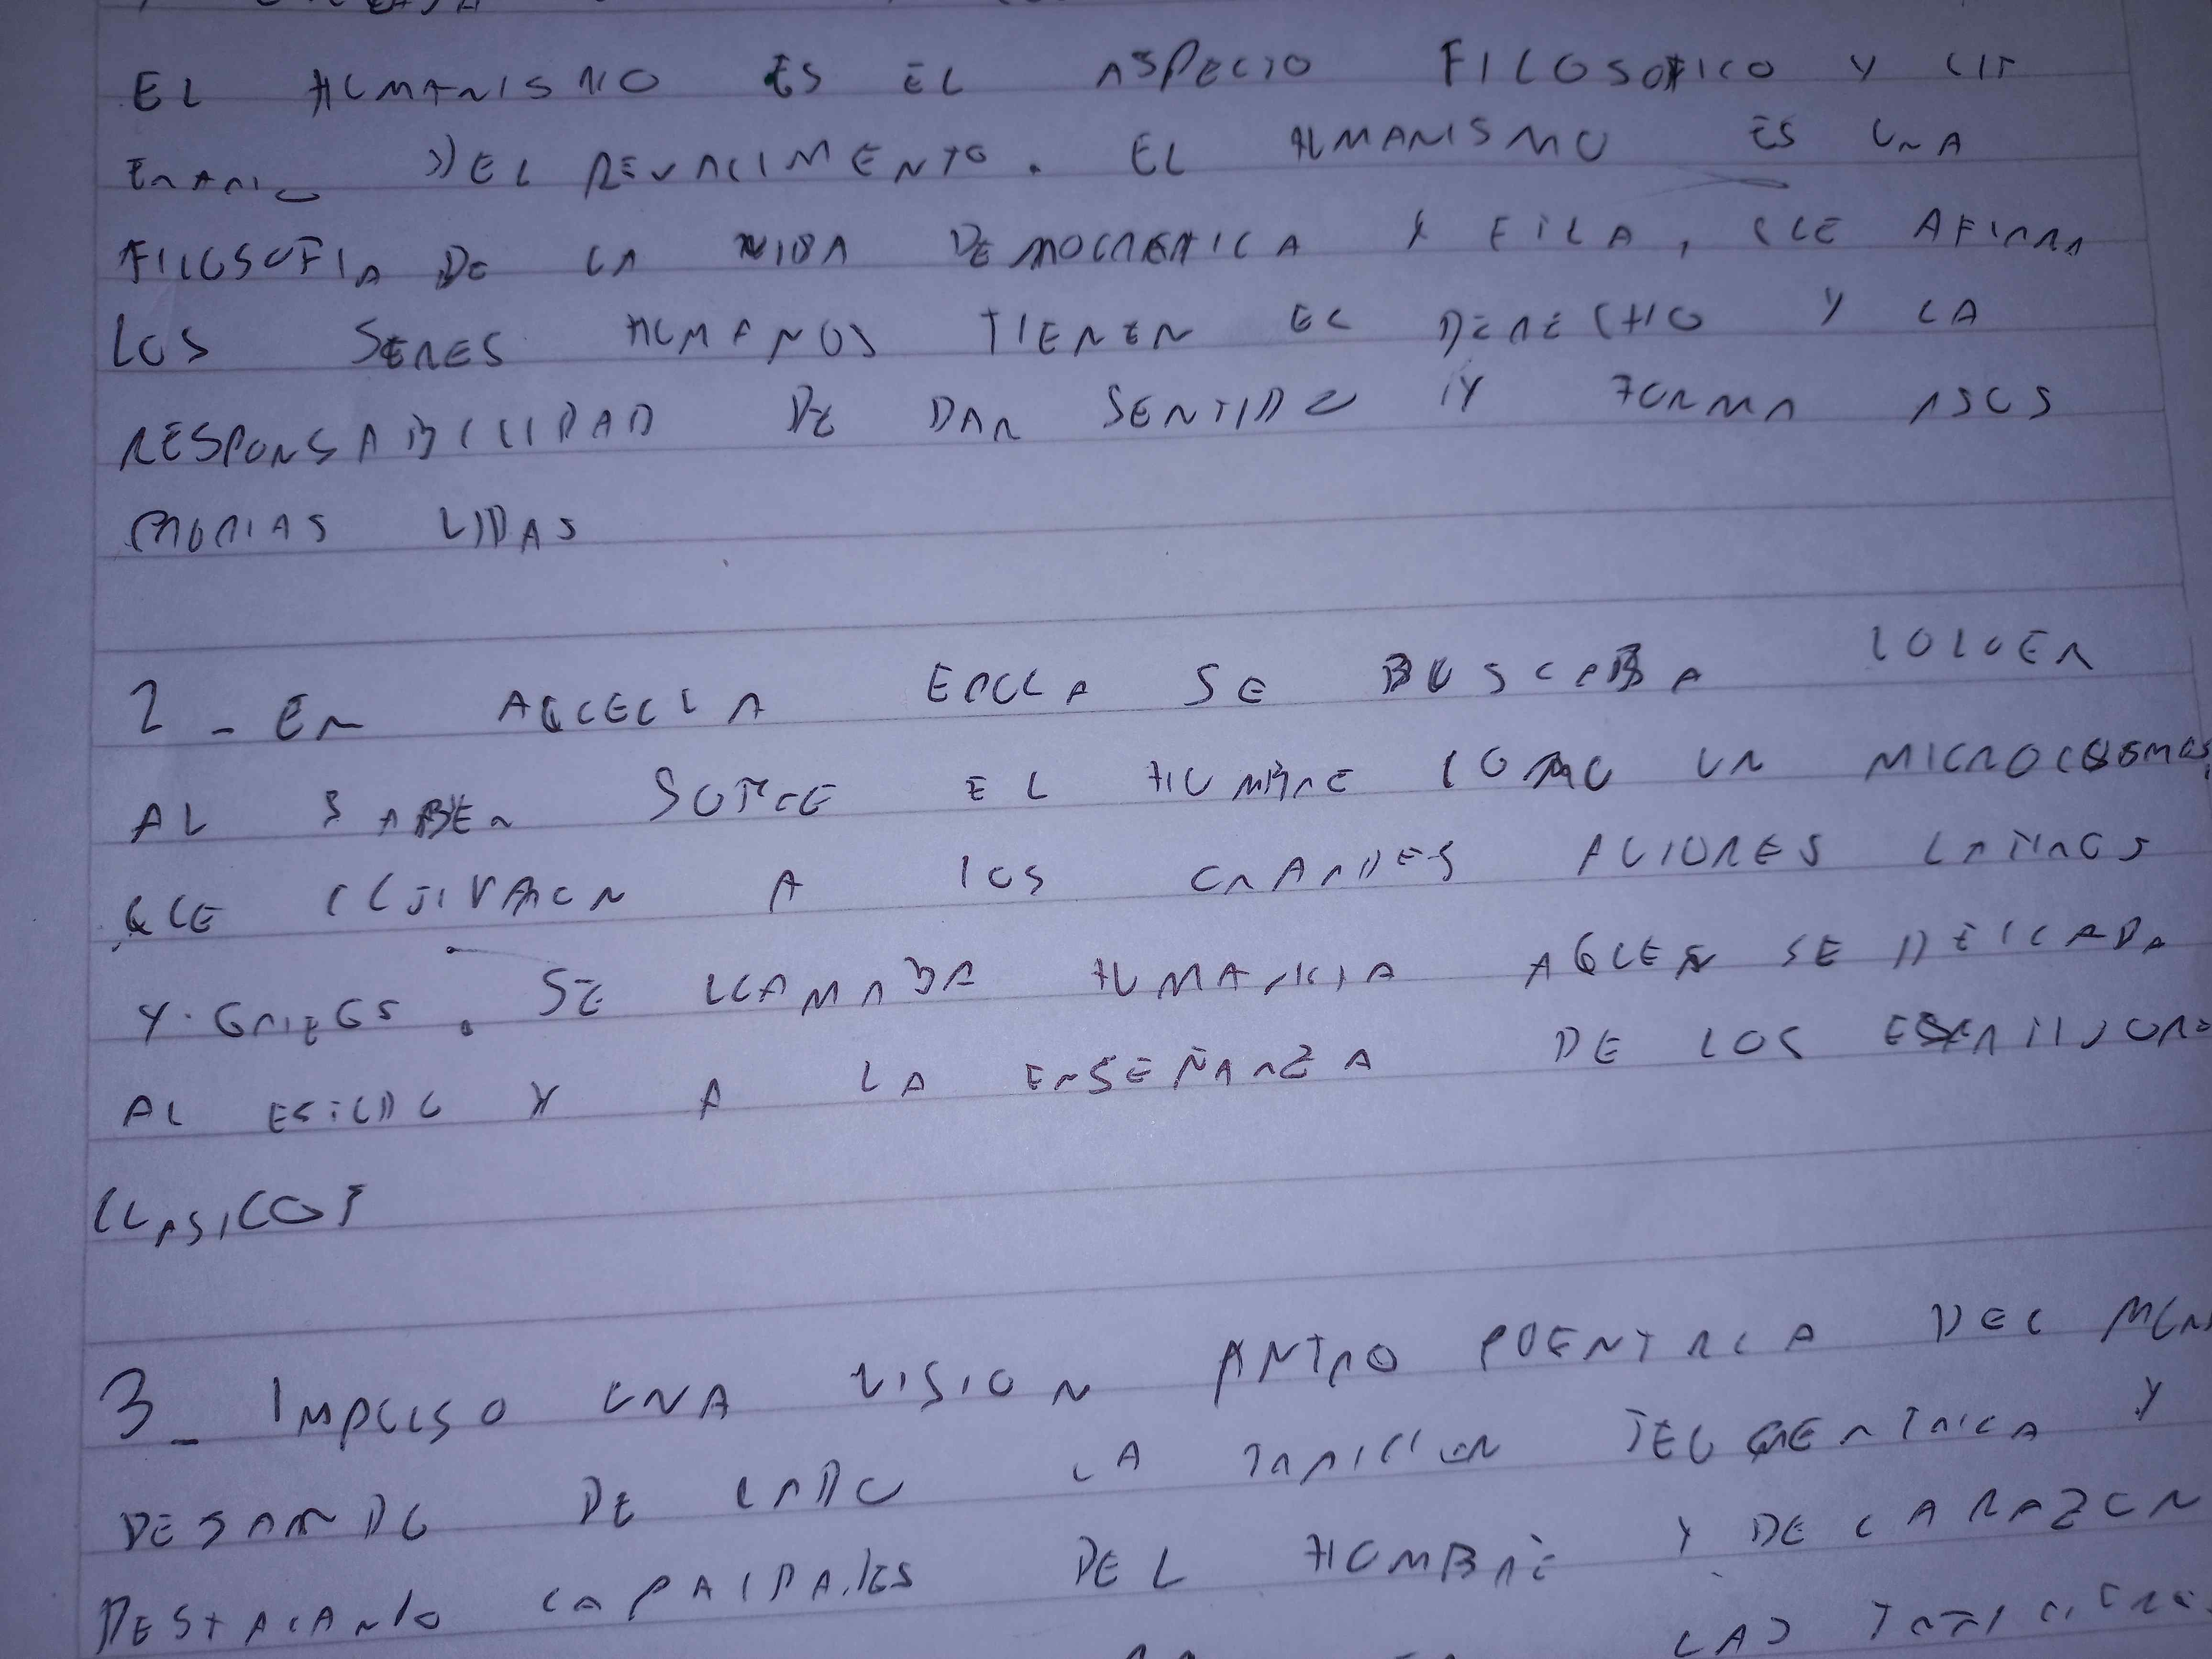 EL HUMANISMO ES EL ASPECTO FILOSOFICO Y LIT
ERARIO DEL REVACIMENTO. EL HUMANISMO ES UNA
FILOSOFIA DE LA VIDA DEMOCRETICA Y ETICA, QUE AFIRMA
LOS SERES HUMANOS TIENEN EL DERECHO Y LA
RESPONSABILIDAD DE DAR SENTIDO Y FORMA ASUS
PROPIAS VIDAS
2 - EN AQUELLA EPOCA SE BUSCABA VOLVER
AL SABER SOBRE EL HOMBRE COMO UN MICROCOSMOS,
QUE CULTIVARON A LOS GRANDES AUTORES LATINOS
Y GRIEGOS. SE LLAMABA HUMANISTA AQUEN SE DEICADA
AL ESTUDIO Y A LA ENSEÑANZA DE LOS ESCRITJORE
CLASICOS
3_ IMPULSO UNA VISION ANTRO POENTRICA DEL MUN
DESANDO DE LADO LA TRADICION TEOCENTRICA Y
DESTACANDO CAPACIDADES DEL HOMBRE Y DE LA RAZON
LAS